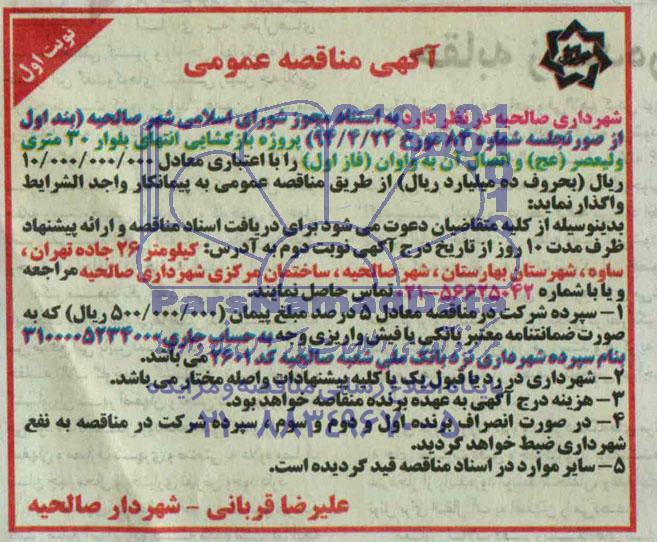 نوبت اول
آگهی مناقصه عمومی
شهرداری صالحیه در نظر دارد به استناد مجوز شورای اسلامی شهر صالحیه (بند اول
از صورتجلسه شماره ۸۳ مورخ ۹۴/۴/۲۴) پروژه بازگشایی انتهای بلوار ۳۰ متری
ولیعصر (عج) و اتصال آن به واوان (فاز اول) را با اعتباری معادل ۱۰/۰۰۰/۰۰۰/۰۰۰
ریال (بحروف ده میلیارد ریال) از طریق مناقصه عمومی به پیمانکار واجد الشرایط
واگذار نماید:
بدینوسیله از کلیه متقاضیان دعوت می شود برای دریافت اسناد مناقصه و ارائه پیشنهاد
ظرف مدت ۱۰ روز از تاریخ درج آگهی نوبت دوم به آدرس: کیلومتر ۲۶ جاده تهران،
ساوه، شهرستان بهارستان، شهر صالحیه، ساختمان مرکزی شهرداری صالحیه مراجعه
و یا با شماره ۵۶۶۲۵۰۴۲-۰۲۱ تماس حاصل نمایند.
۱- سپرده شرکت در مناقصه معادل ۵ درصد مبلغ پیمان (۵۰۰/۰۰۰/۰۰۰ ریال) که به
صورت ضمانتنامه معتبر بانکی یا فیش واریزی وجه به حساب جاری ۳۱۰۰۰۰۵۲۳۴۰۰۰
بنام سپرده شهرداری نزد بانک ملی شعبه صالحیه کد ۲۶۰۲ می باشد.
۲- شهرداری در رد یا قبول یک یا کلیه پیشنهادات واصله مختار می باشد.
۳- هزینه درج آگهی به عهده برنده مناقصه خواهد بود.
۴- در صورت انصراف برنده اول و دوم و سوم، سپرده شرکت در مناقصه به نفع
شهرداری ضبط خواهد گردید.
۵- سایر موارد در اسناد مناقصه قید گردیده است.
علیرضا قربانی - شهردار صالحیه
ParsNamadData
۰۲۱-۸۸۳۴۹۶۷۰-۵